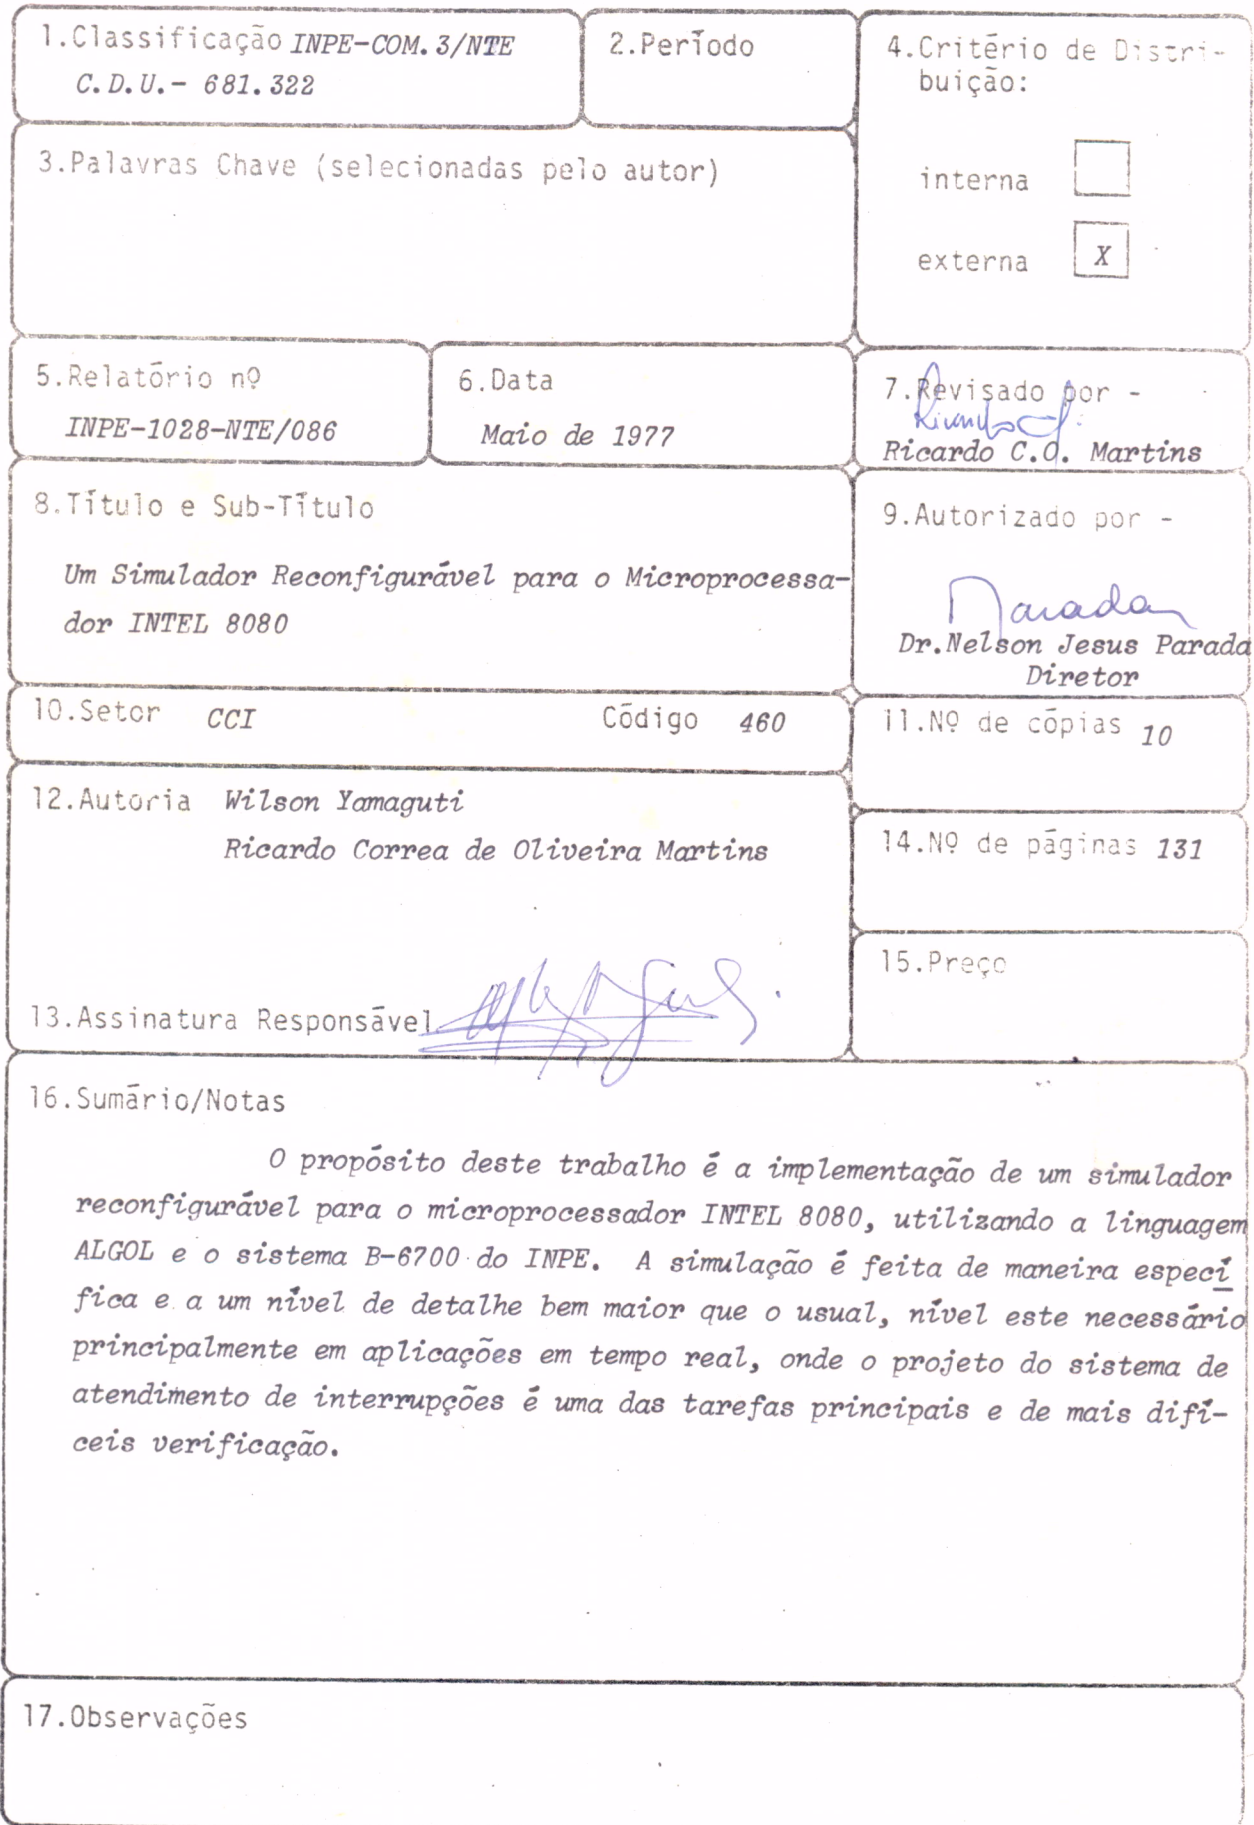 1.Classificação INPE-COM.3/NTE
C.D.U.- 681.322
2.Período
4.Critério de Distri-
buição:
interna
externa X
3.Palavras Chave (selecionadas pelo autor)
5.Relatório nº
INPE-1028-NTE/086
6.Data
Maio de 1977
7.Revisado por -
Ricardo C.O. Martins
8.Título e Sub-Título
Um Simulador Reconfigurável para o Microprocessa-
dor INTEL 8080
9.Autorizado por -
Parada
Dr.Nelson Jesus Parada
Diretor
10.Setor CCI Código 460
11.Nº de cópias 10
12.Autoria Wilson Yamaguti
Ricardo Correa de Oliveira Martins
14.Nº de páginas 131
15.Preço
13.Assinatura Responsável
16.Sumário/Notas
O propósito deste trabalho é a implementação de um simulador
reconfigurável para o microprocessador INTEL 8080, utilizando a linguagem
ALGOL e o sistema B-6700 do INPE. A simulação é feita de maneira especí
fica e a um nível de detalhe bem maior que o usual, nível este necessário
principalmente em aplicações em tempo real, onde o projeto do sistema de
atendimento de interrupções é uma das tarefas principais e de mais difí-
ceis verificação.
17.Observações